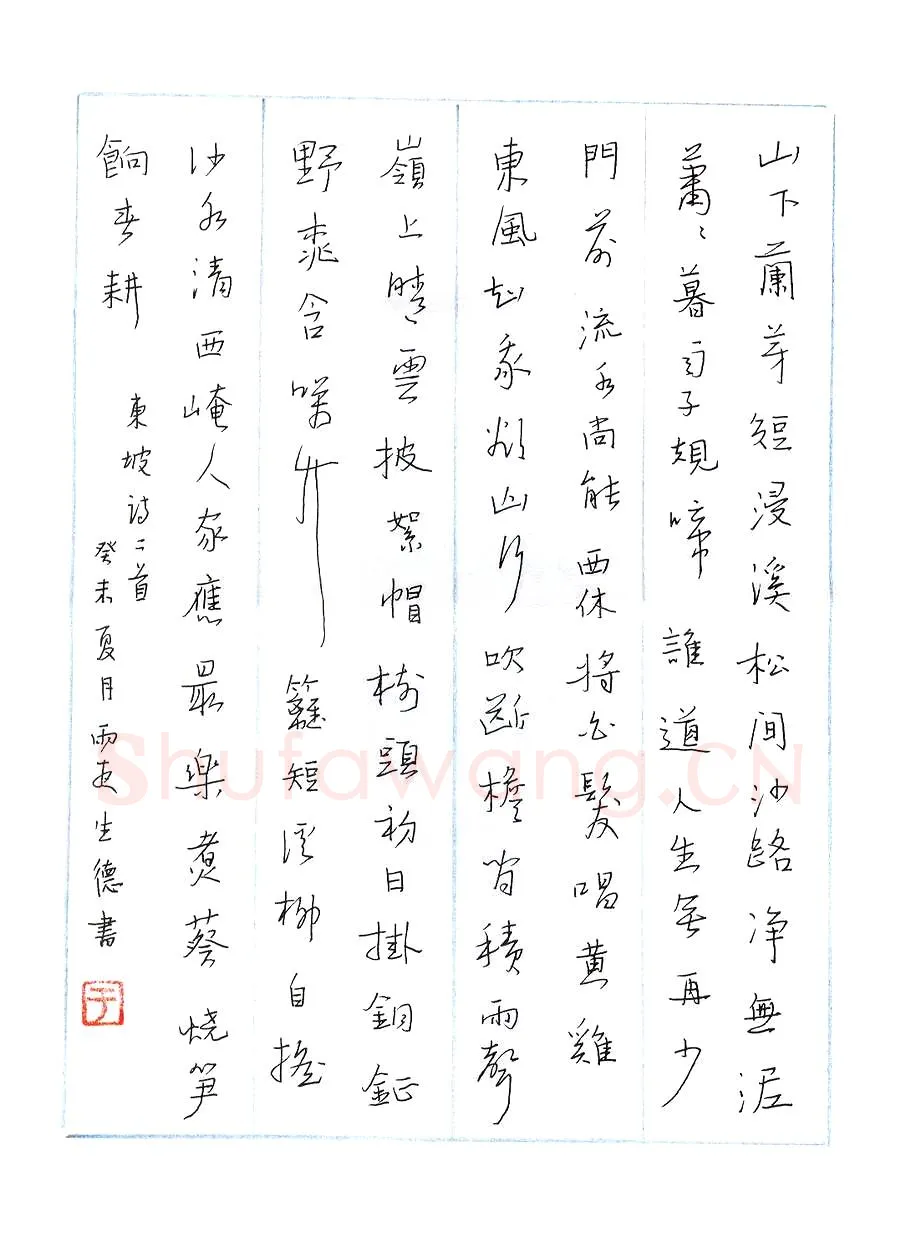 山下蘭芽短浸溪松间沙路净無泥
蕭〻暮雨子規啼 誰道人生無再少
門前流水尚能西休將白髮唱黄雞
東風知我欲山行吹斷檐間積雨聲
嶺上晴雲披絮帽樹頭初日掛銅鉦
野桃含笑竹籬短溪柳自搖
沙水清西崦人家應最樂煮葵烧笋
餉春耕
東坡詩二首
癸未夏月雨生德書
于
Shufawang.CN